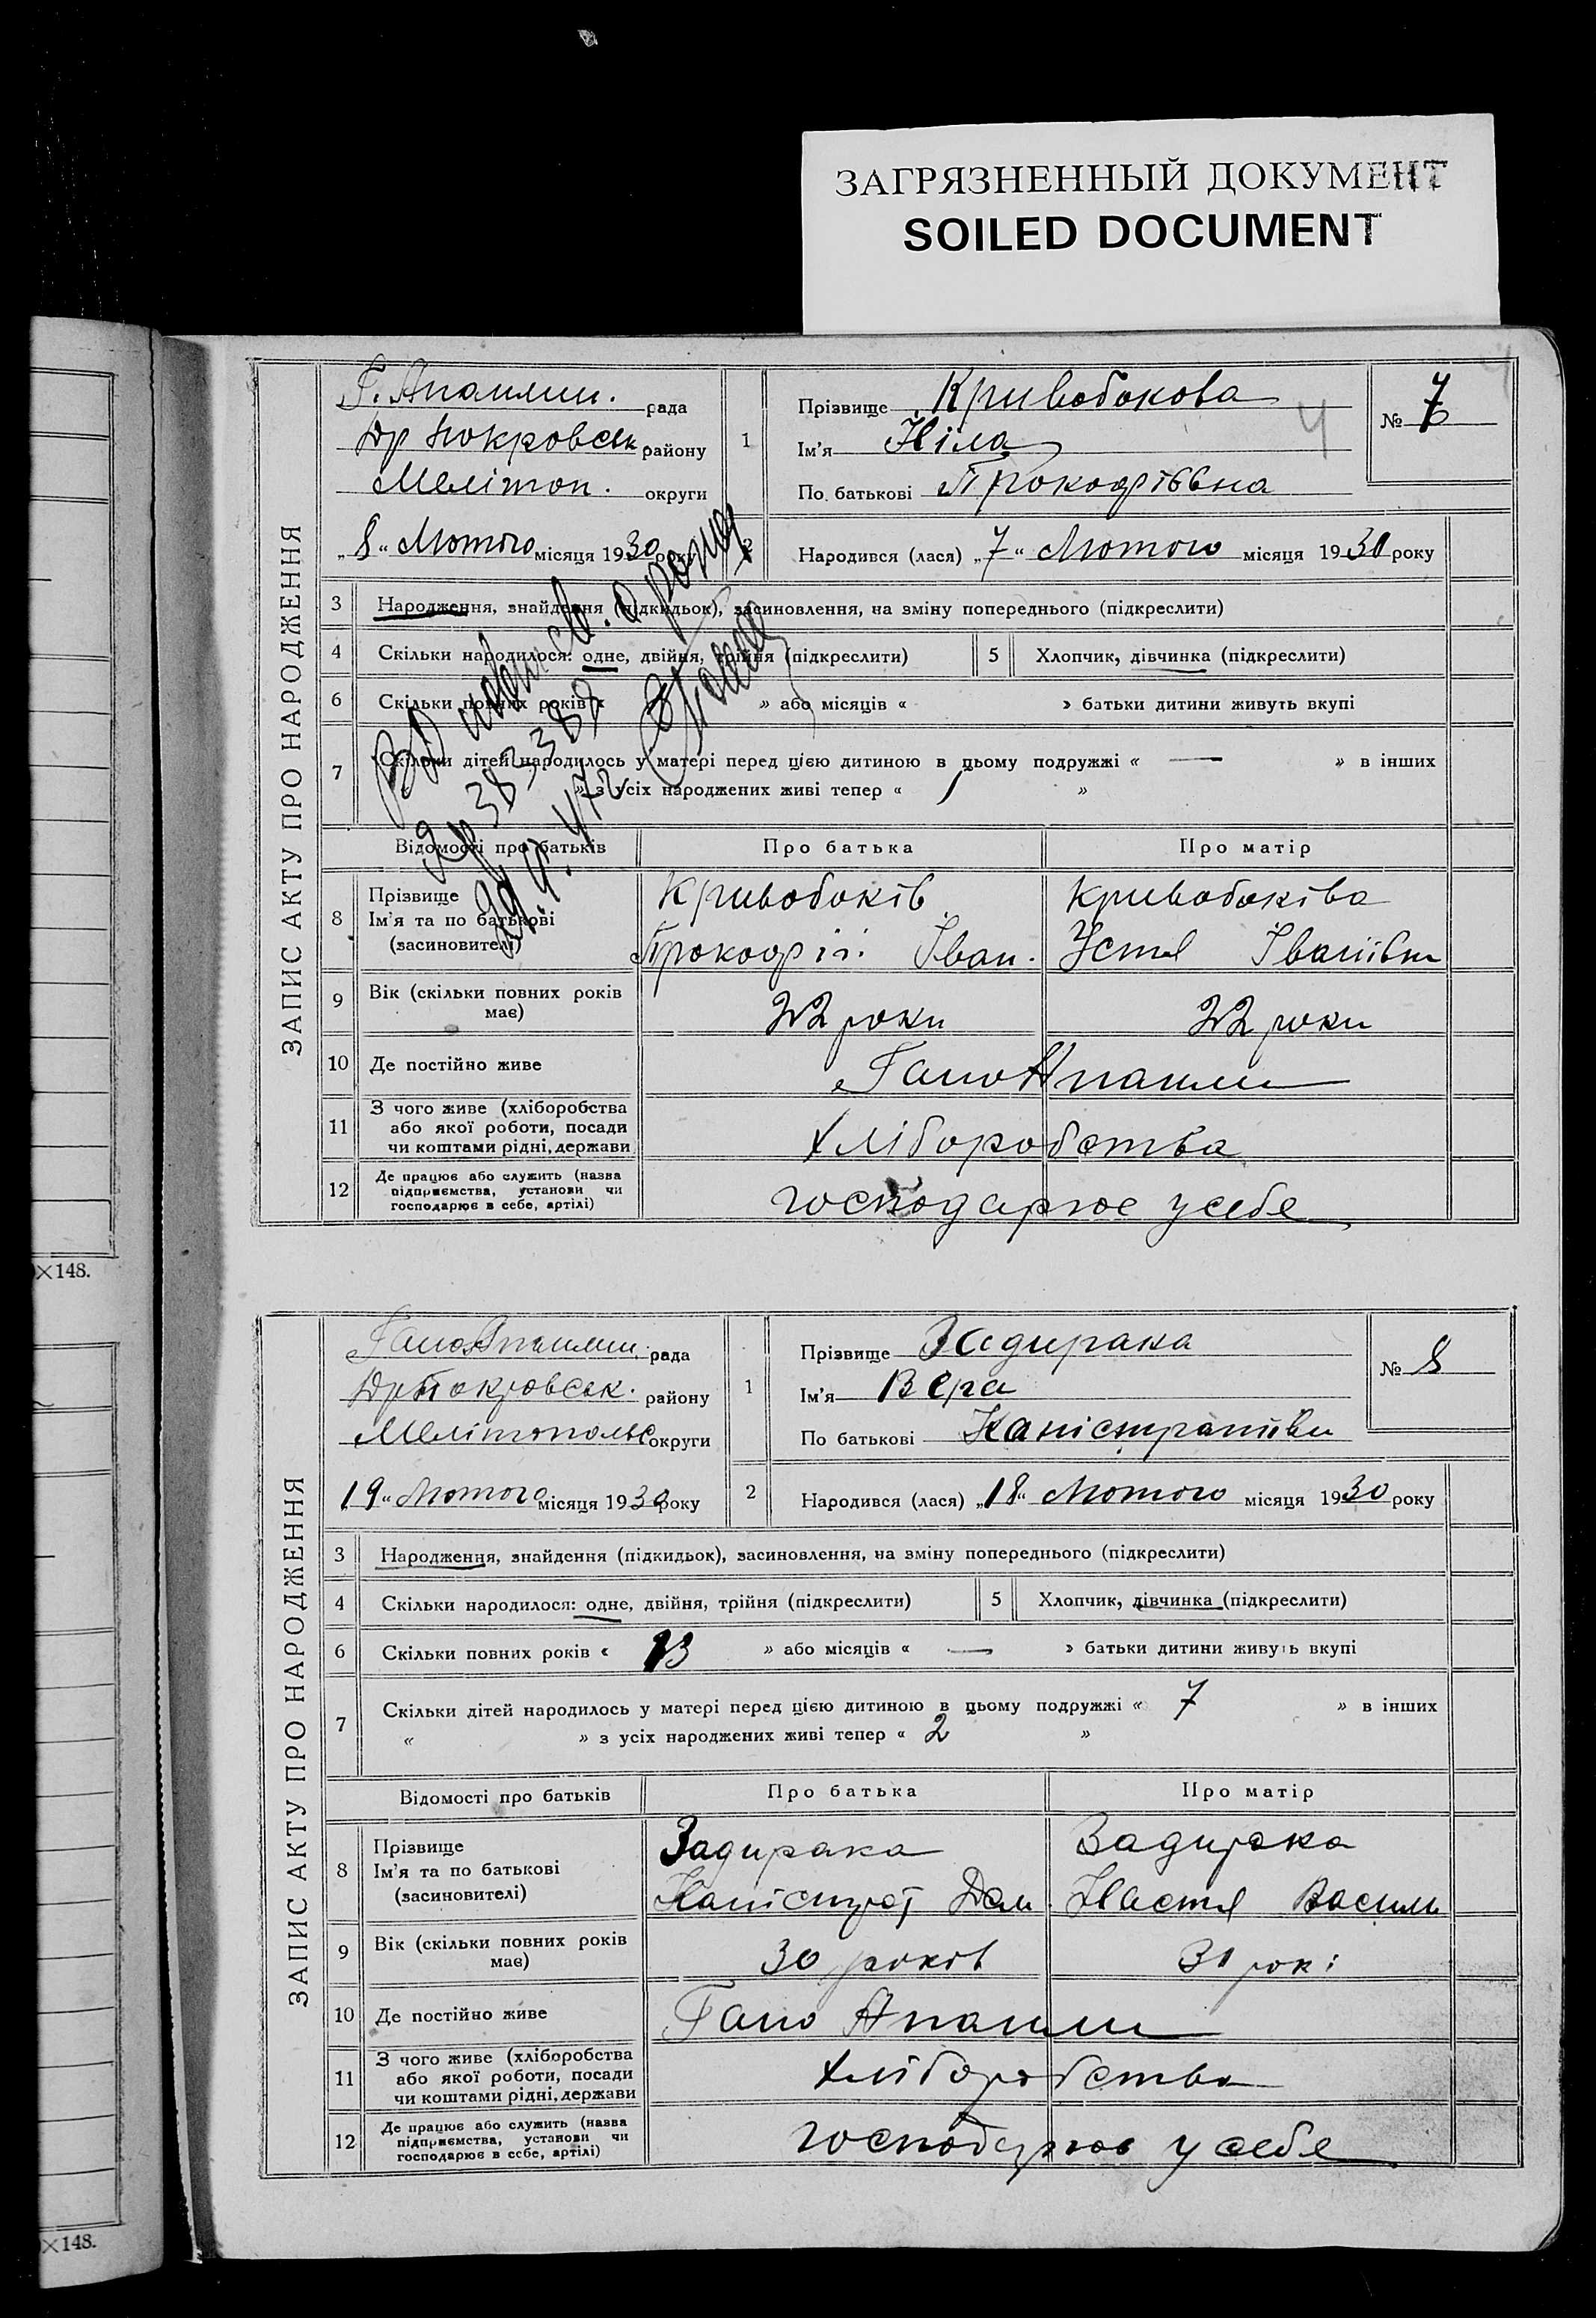 ЗАГРЯЗНЕННЫЙ ДОКУМЕНТ
SOILED DOCUMENT
4
ЗАПИС АКТУ ПРО НАРОДЖЕННЯ
рада
Др Покровськ району
Меліитоп. округи
„8“ Лютого місяця 1930 року
1
Прізвище Кривобокова
Ім'я Ніла
По батькові Прокофіївна
№ 7
4
2
Народився (лася) „7“ Лютого місяця 1930 року
3 Народження, знайдення (підкидьок), засиновлення, на зміну попереднього (підкреслити)
4 Скільки народилося: одне, двійня, трійня (підкреслити)
5 Хлопчик, дівчинка (підкреслити)
6 Скільки повних років « » або місяців « » батьки дитини живуть вкупі
7 Скільки дітей народилось у матері перед цією дитиною в цьому подружжі « — » в інших
» з усіх народжених живі тепер « »
Відомості про батьків Про батька Про матір
8 Прізвище
Ім'я та по батькові
(засновителі)
Кривобоків
Прокофій Іван.
Кривобоківа
Устя Іванівн
9 Вік (скільки повних років
має)
22 роки 22 роки
10 Де постійно живе Гано Апашли
11 З чого живе (хліборобства
або якої роботи, посади
чи коштами рідні, держави
хліборобства
12 Де працює або служить (назва
підприємства, установи чи
господарює в себе, артілі)
господарює у себе
×148.
ЗАПИС АКТУ ПРО НАРОДЖЕННЯ
рада
Др Покровськ. району
Мелітопольс округи
„19“ Лютого місяця 1930 року
1
Прізвище Задирака
Ім'я Вера
По батькові Каністратівн
№ 8
2
Народився (лася) „18“ Лютого місяця 1930 року
3 Народження, знайдення (підкидьок), засиновлення, на зміну попереднього (підкреслити)
4 Скільки народилося: одне, двійня, трійня (підкреслити)
5 Хлопчик, дівчинка (підкреслити)
6 Скільки повних років « 13 » або місяців « — » батьки дитини живуть вкупі
7 Скільки дітей народилось у матері перед цією дитиною в цьому подружжі « 7 » в інших
« » з усіх народжених живі тепер « 2 »
Відомості про батьків Про батька Про матір
8 Прізвище
Ім'я та по батькові
(засиновителі)
Задирака
Каністрат Дем
Задирака
Настя Василь
9 Вік (скільки повних років
має)
30 років 31 рокі
10 Де постійно живе Гано Апашли
11 З чого живе (хліборобства
або якої роботи, посади
чи коштами рідні, держави
хліборобства
12 Де працює або служить (назва
підприємства, установи чи
господарює в себе, артілі)
господарює у себе
×148.